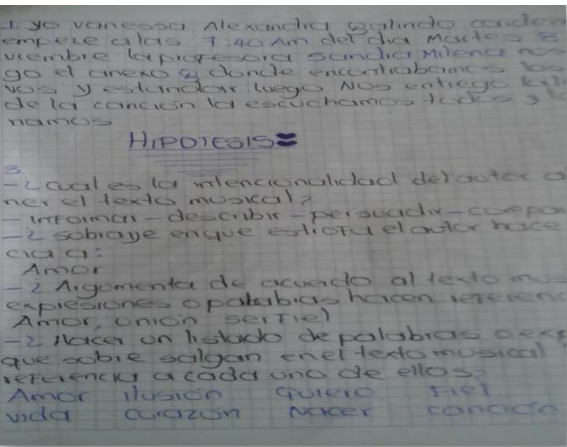 1 yo vanessa Alexandra Galindo
empeze a las 7:40 Am del dia Martes 8
viembre la profesora Sandra Milena nos
go el anexo 2 donde encontrabamos los
vos y estandar luego nos entrego
de la canción la escuchamos todos y
namos
HIPOTESIS
3.
-¿cual es la intencionalidad del autor
ner el texto musical?
- informar - describir - persuadir -
-¿ sobraye en que estrofa el autor hace
cia a:
Amor
-¿ Argomenta de acuerdo al texto mus
expresiones o palabras hacen referenc
Amor, onion ser fiel
-¿ Hacer un listado de palabras o exp
que sobre salgan en el texto musical
referencia a cada uno de ellos?
Amor ilusion Quiero Fiel
vida corazón Nacer canción